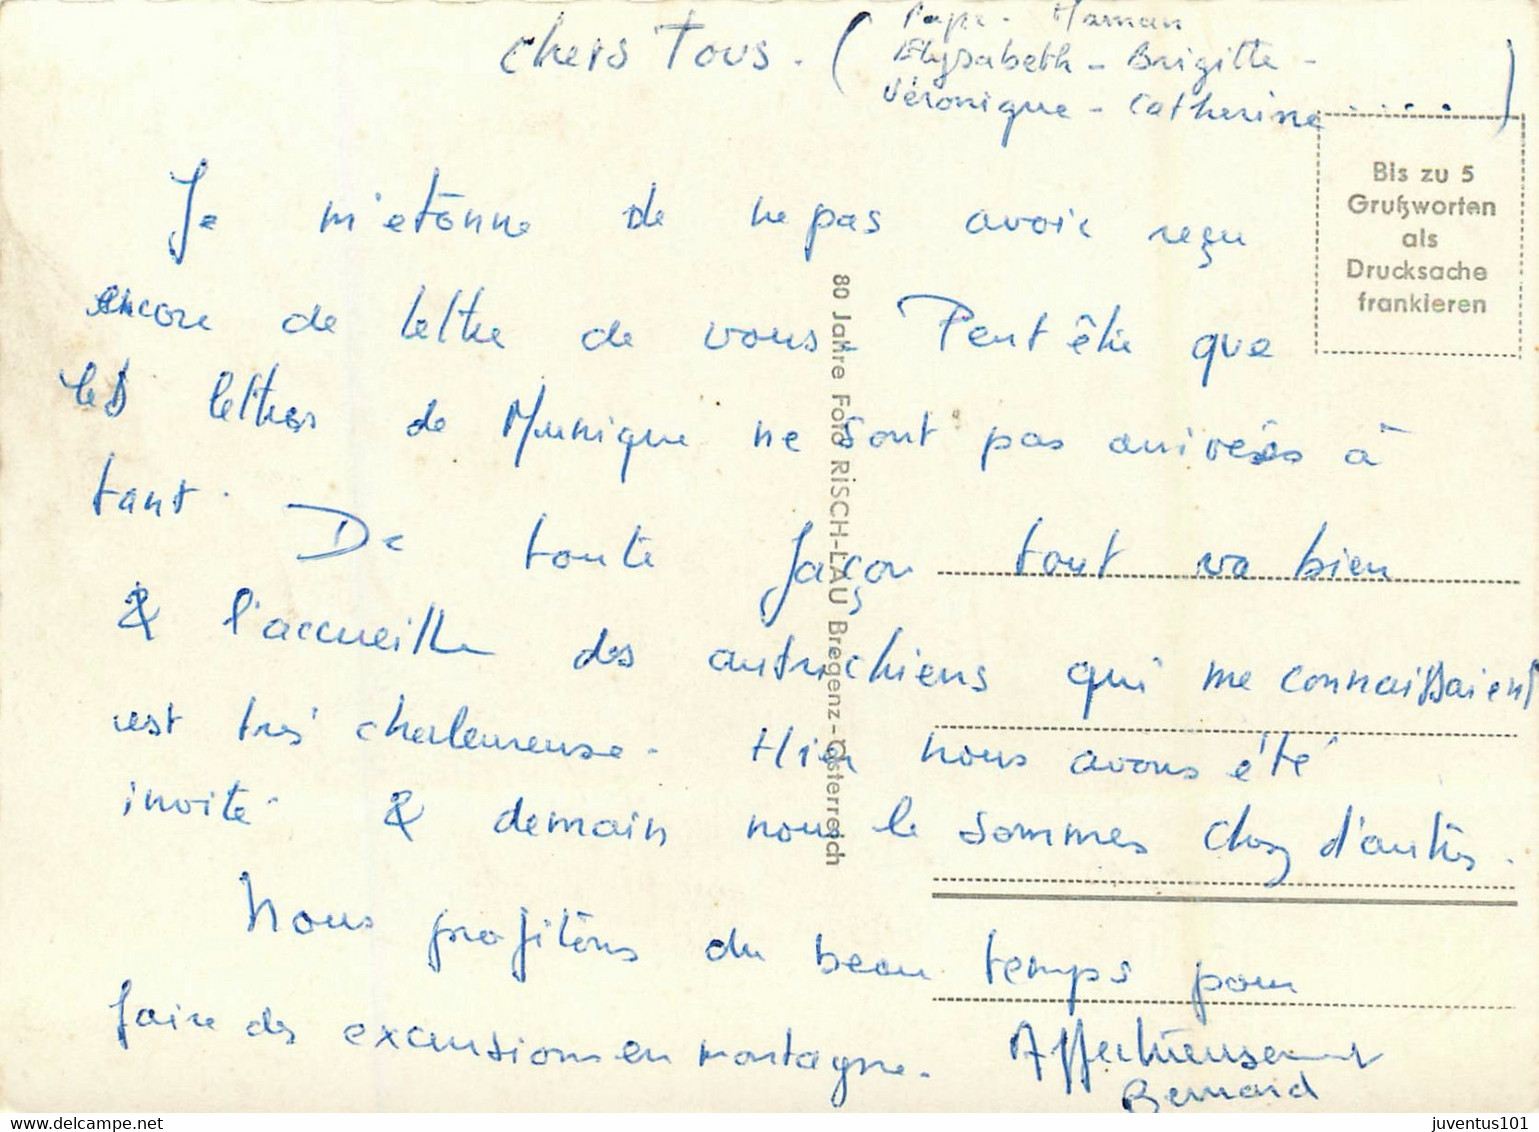 Papa - Maman
Chers Tous. ( Elysabeth - Brigitte -
Véronique - Catherine . . . . . )
Bis zu 5
Grußworten
als
Drucksache
frankieren
Je m'etonne de ne pas avoir reçu
encore de lettre de vous. Peut être que
les lettres de Munique ne sont pas arrivées à
tant. De toute façon tout va bien
& l'accueille des autrichiens qui me connaissaient
est très chaleureuse. Hier nous avons été
invité & demain nous le sommes chez d'autres.
Nous profitons du beau temps pour
faire des excursions en montagne. Affectueusement
Bernard
80 Jahre Foto RISCH-LAU Bregenz-Österreich
www.delcampe.net
juventus101